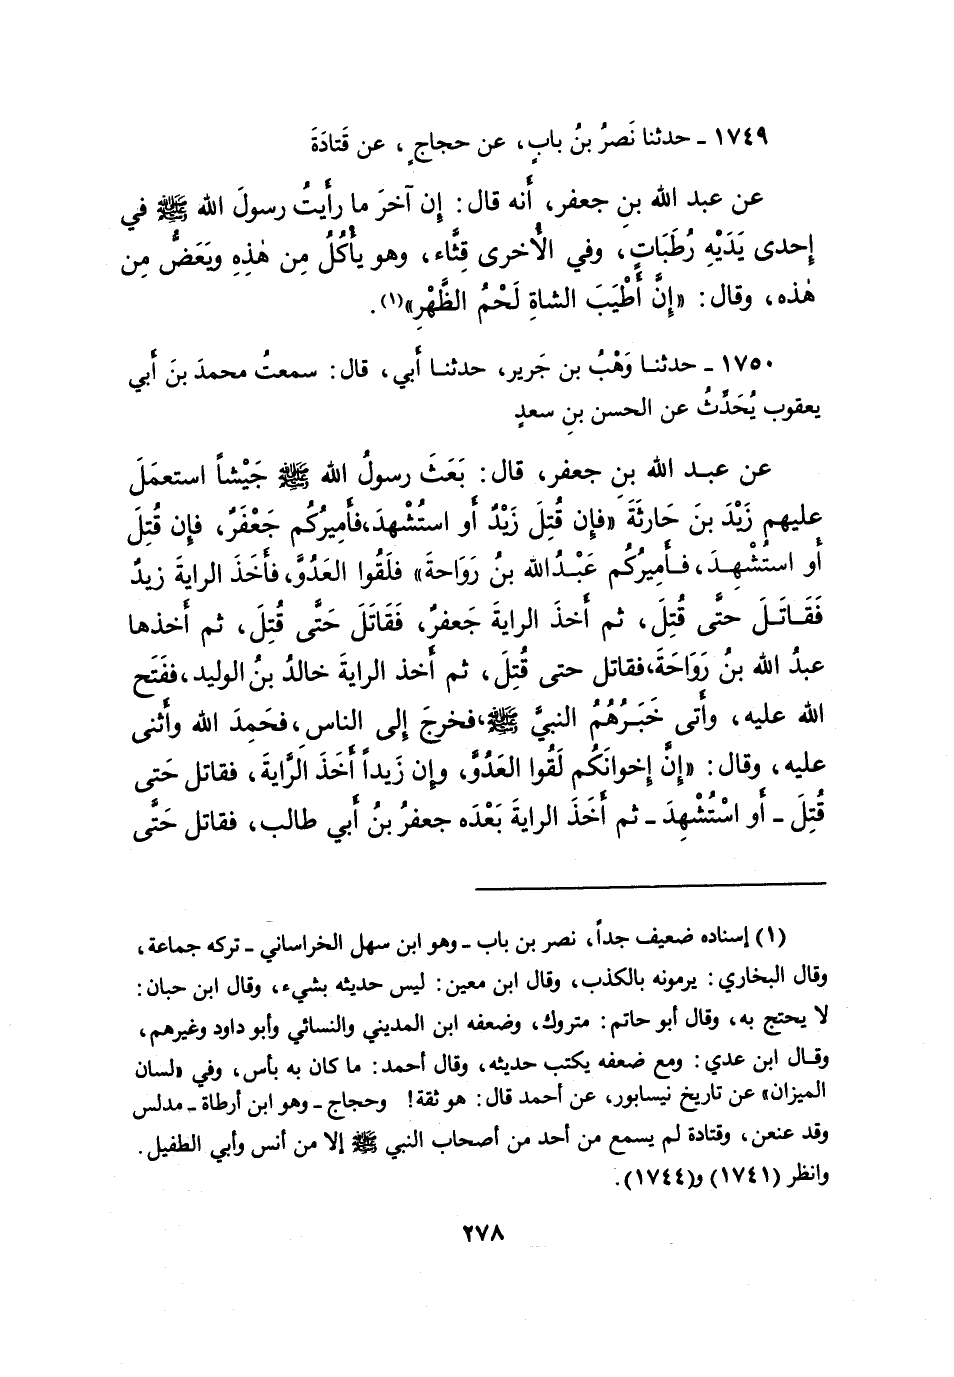 ١٧٤٩ ـ حدثنا نَصرُ بنُ بابٍ، عن حجاجٍ، عن قَتادَةَ
عن عبد الله بنِ جعفر، أنه قال: إن آخرَ ما رأيتُ رسولَ الله ﷺ في
إحدى يَدَيْهِ رُطَبَاتٍ، وفي الأُخرى قِثَّاء، وهو يأْكُلُ مِن هٰذِهِ ويَعَضُّ مِن
هٰذه، وقال: «إِنَّ أَطْيَبَ الشاةِ لَحْمُ الظَّهْرِ»(١).
١٧٥٠ ـ حدثنا وَهْبُ بن جَرير، حدثنا أَبي، قال: سمعتُ محمدَ بنَ أَبي
يعقوب يُحَدِّثُ عن الحسن بنِ سعدٍ
عن عبد الله بنِ جعفر، قال: بَعَثَ رسولُ الله ﷺ جَيْشاً استعمَلَ
عليهم زَيْدَ بنَ حَارثَةَ «فإن قُتِلَ زَيْدٌ أَو استُشْهِدَ،فأَمِيرُكُم جَعْفَرٌ، فإن قُتِلَ
أَو استُشْهِدَ، فأَمِيرُكُم عَبْدُالله بنُ رَوَاحة» فلَقُوا العَدُوَّ،فأَخَذَ الرايةَ زيدٌ
فَقَاتَلَ حتَّى قُتِلَ، ثم أَخذَ الرايةَ جَعفرٌ، فَقَاتَلَ حَتَّى قُتِلَ، ثم أَخذها
عبدُ الله بنُ رَوَاحَةَ،فقاتل حتى قُتِلَ، ثم أَخذ الرايةَ خالدُ بنُ الوليد،ففَتَح
الله عليه، وأَتى خَبَرُهُمُ النبيَّ ﷺ،فخرجَ إلى الناسِ،فحَمِدَ الله وأَثنى
عليه، وقال: «إنَّ إخوانَكُم لَقُوا العَدُوَّ، وإن زَيداً أَخَذَ الرَّايةَ، فقاتل حَتى
قُتِلَ ـ أَو اسْتُشْهِدَ ـ ثم أَخَذَ الرايةَ بَعْدَه جعفرُ بنُ أَبي طالب، فقاتل حَتَّى
(١) إسناده ضعيف جداً، نصر بن باب ـ وهو ابن سهل الخراساني ـ تركه جماعة،
وقال البخاري: يرمونه بالكذب، وقال ابن معين: ليس حديثه بشيء، وقال ابن حبان:
لا يحتج به، وقال أبو حاتم: متروك، وضعفه ابن المديني والنسائي وأبو داود وغيرهم،
وقال ابن عدي: ومع ضعفه يكتب حديثه، وقال أحمد: ما كان به بأس، وفي «لسان
الميزان» عن تاريخ نيسابور، عن أحمد قال: هو ثقة! وحجاج ـ وهو ابن أرطاة ـ مدلس
وقد عنعن، وقتادة لم يسمع من أحد من أصحاب النبي ﷺ إلا من أنس وأبي الطفيل.
وانظر (١٧٤١) و(١٧٤٤).
٢٧٨